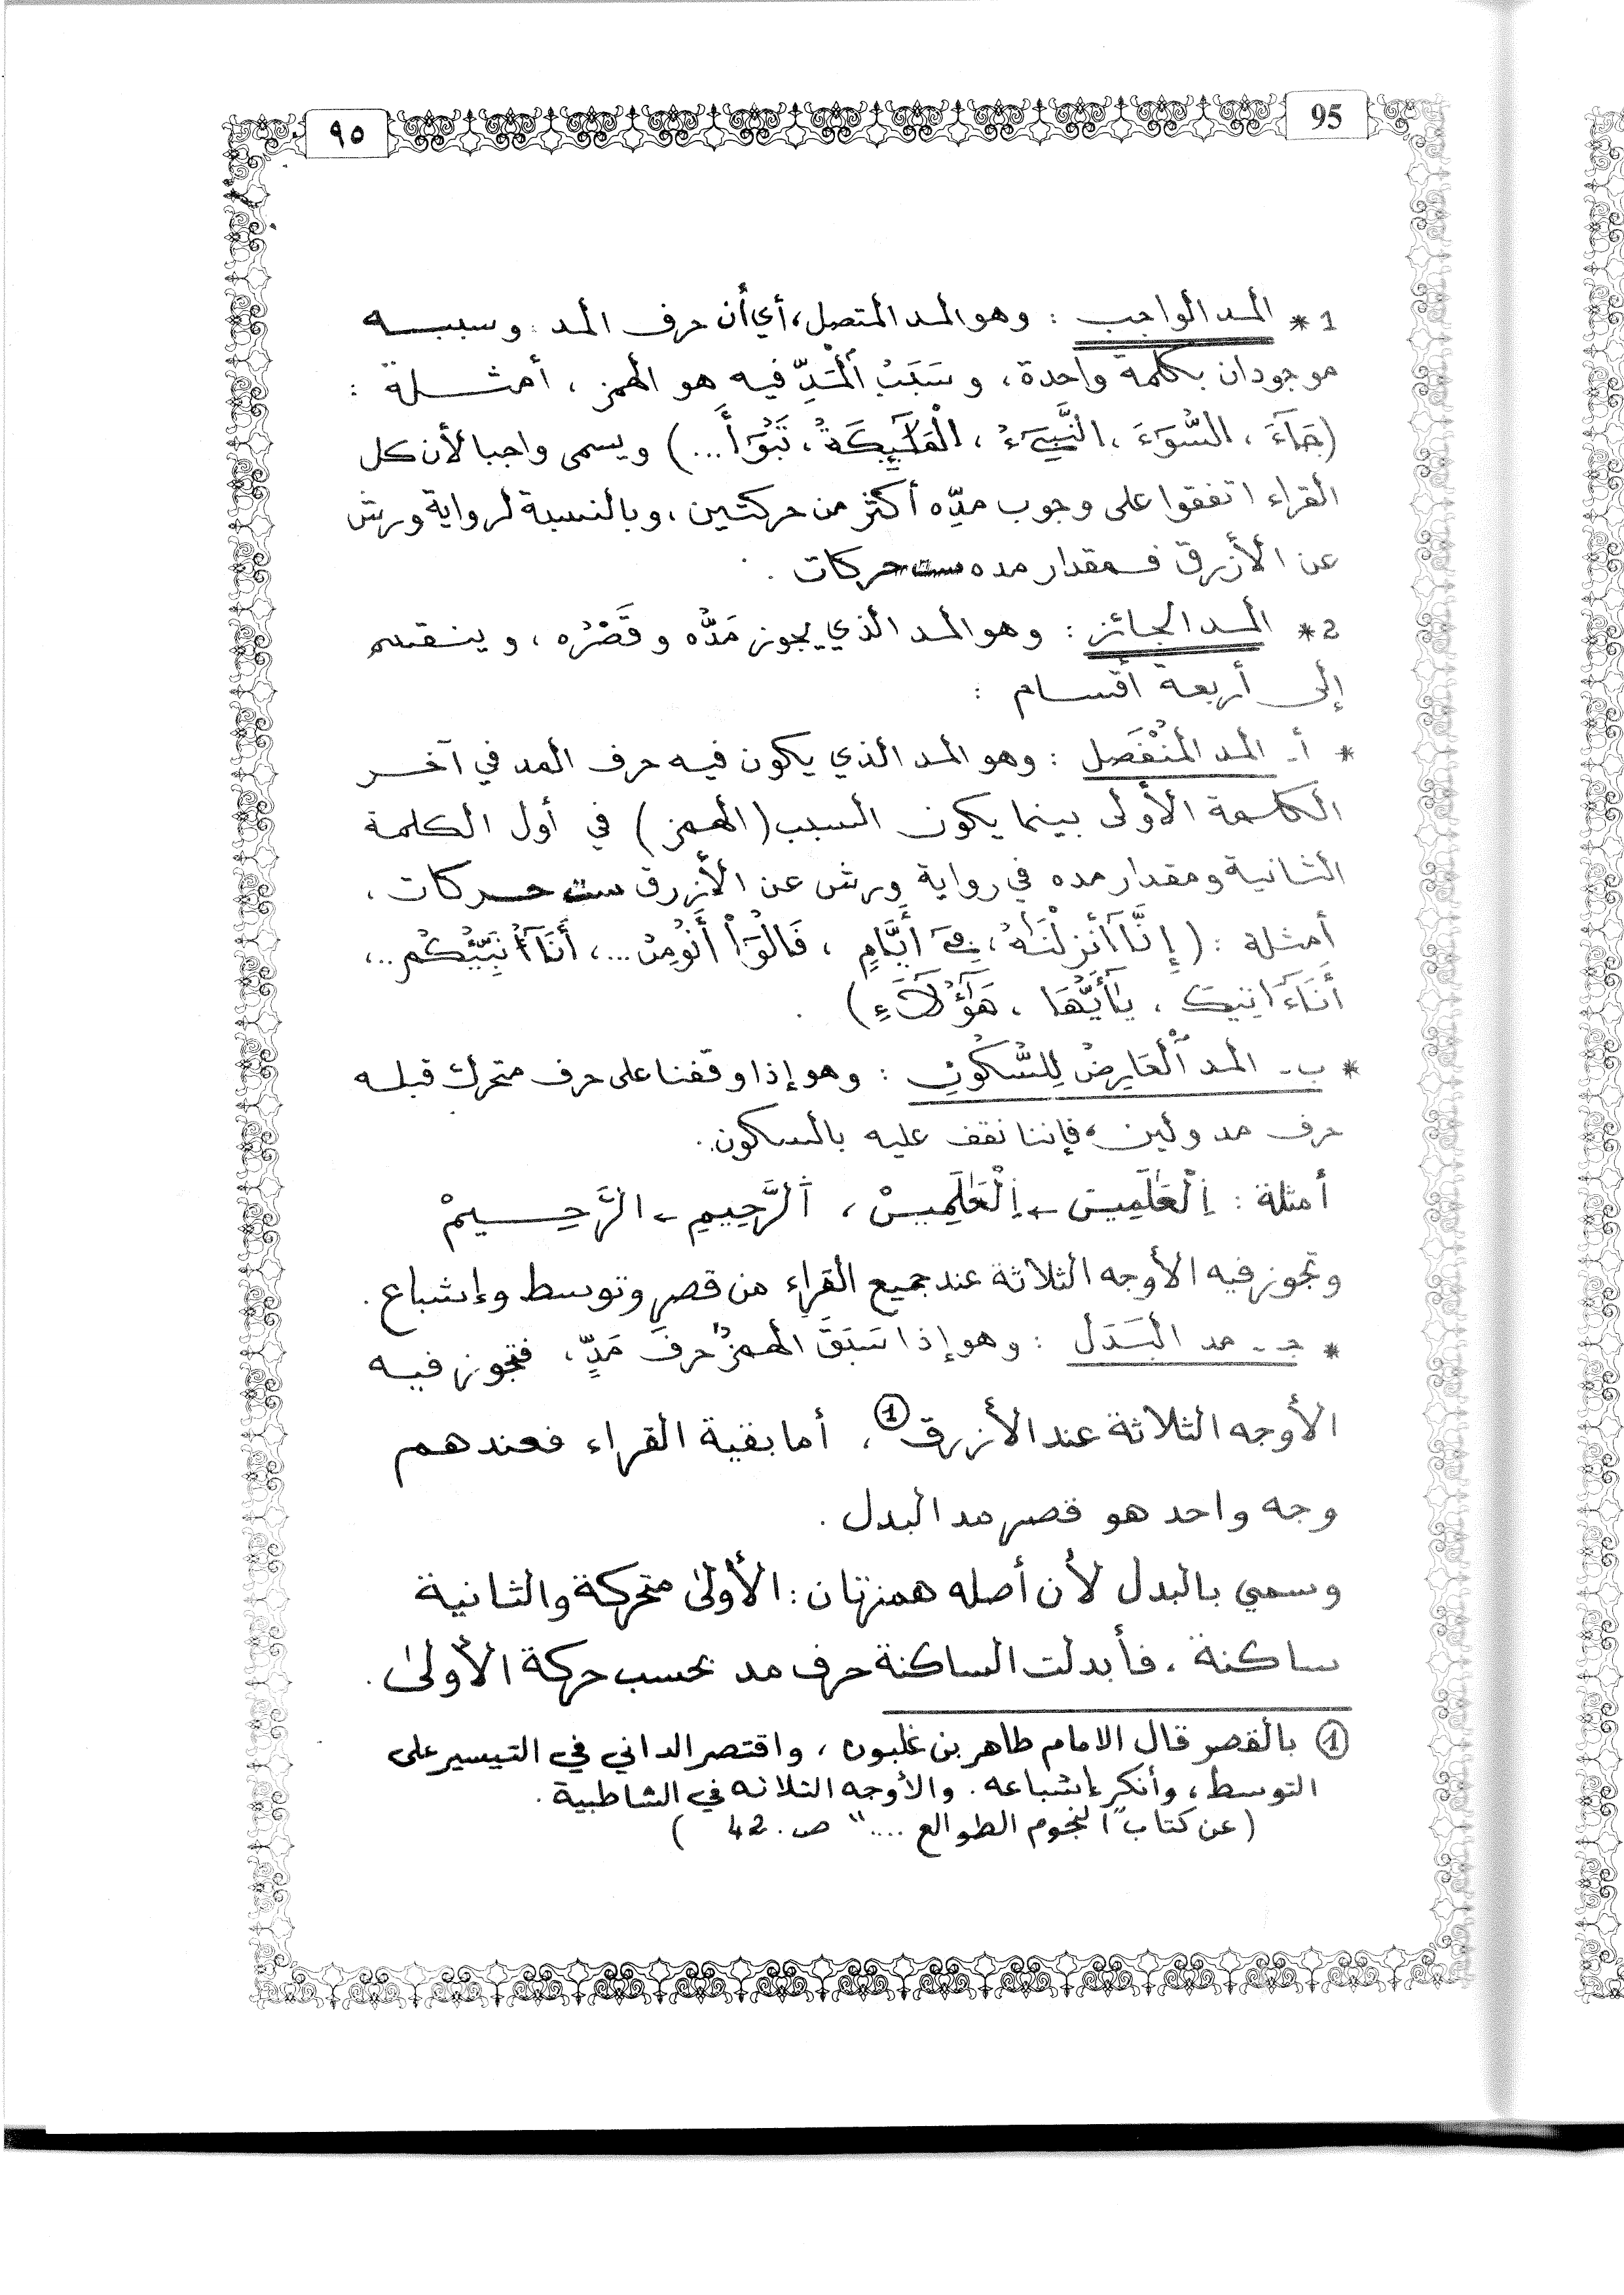 95
٩٥
1 * المد الواجب : وهو المد المتصل، أي أن حرف المد وسببه
موجودان بكلمة واحدة، وسَبَبُ اْلمَدِّ فيه هو الهمز ، أمثلة :
(جَآءَ ، السُّوٓءَ ، النَّبِيٓءُ ، الْمَلَٰٓئِكَةُ ، تَبُوٓأَ ...) ويسمى واجبا لأن كل
القراء اتفقوا على وجوب مدّه أكثر من حركتين ، وبالنسبة لرواية ورش
عن الأزرق فمقدار مده ست حركات .
2 * المد الجائز : وهو المد الذي يجوز مَدُّه وقَصْرُه ، وينقسم
إلى أربعة أقسام :
* أ - المد المُنْفَصِل : وهو المد الذي يكون فيه حرف المد في آخر
الكلمة الأولى بينما يكون السبب (الهمز) في أول الكلمة
الثانية ومقدار مده في رواية ورش عن الأزرق ست حركات ،
أمثلة : (إِنَّآ أَنزَلْنَٰهُ ، فِےٓ أَيَّامٍ ، قَالُوٓاْ أَنُومِنُ ...، أَنَآ أُنَبِّئُكُم ..،
أَنَآ ءَاتِيكَ ، يَٰٓأَيُّهَا ، هَٰٓؤُلَآءِ) .
* ب - المد اْلعَارِضُ لِلسُّكُونِ : وهو إذا وقفنا على حرف متحرك قبله
حرف مد ولين ، فإننا نقف عليه بالسكون.
أمثلة : اِلْعَٰلَمِينَ ← اِلْعَٰلَمِينْ ، اَلرَّحِيمِ ← الرَّحِيمْ
وتجوز فيه الأوجه الثلاثة عند جميع القراء من قصر وتوسط وإشباع .
* ج - مد البَدَل : وهو إذا سَبَقَ الهمزُ حرفَ مَدٍّ ، فتجوز فيه
الأوجه الثلاثة عند الأزرق ① ، أما بقية القراء فعندهم
وجه واحد هو قصر مد البدل .
وسمي بالبدل لأن أصله همزتان : الأولىٰ متحركة والثانية
ساكنة ، فأبدلت الساكنة حرف مد بحسب حركة الأولىٰ .
① بالقصر قال الامام طاهر بن غلبون ، واقتصر الداني في التيسير على
التوسط ، وأنكر إشباعه . والأوجه الثلاثة في الشاطبية .
(عن كتاب "النجوم الطوالع ...." ص . 42 )